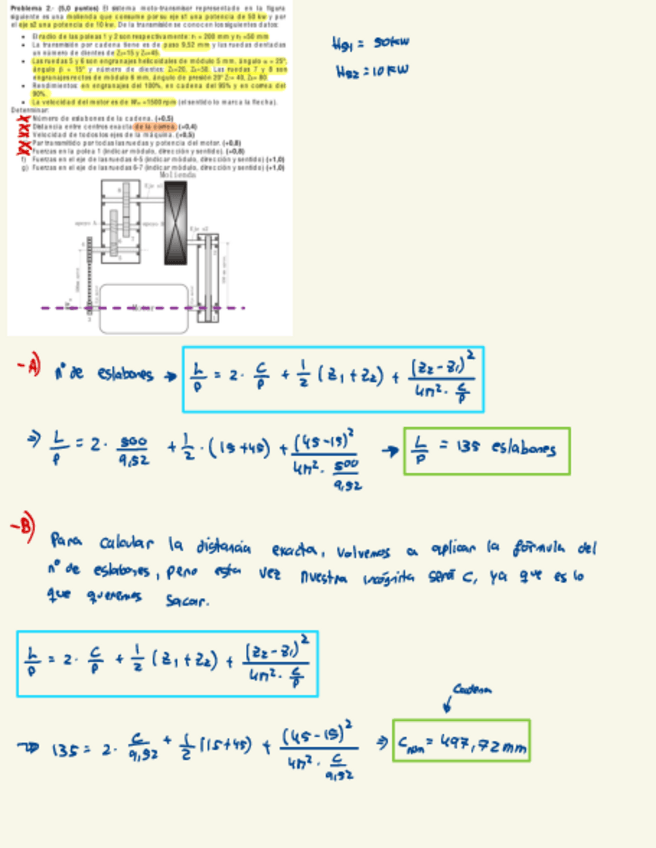 Problema 2.- (5,0 puntos) El sistema moto-transmisor representado en la figura
siguiente es una molienda que consume por su eje s1 una potencia de 50 kw y por
el eje s2 una potencia de 10 kw. De la transmisión se conocen los siguientes datos:
• El radio de las poleas 1 y 2 son respectivamente: r₁ = 200 mm y r₂ =50 mm
• La transmisión por cadena tiene es de paso 9.52 mm y las ruedas dentadas
un número de dientes de Z₃=15 y Z₄=45.
• Las ruedas 5 y 6 son engranajes helicoidales de módulo 5 mm, ángulo α = 25º,
ángulo β = 15º y número de dientes, Z₅=20, Z₆=50. Las ruedas 7 y 8 son
engranajes rectos de módulo 6 mm, ángulo de presión 20º Z₇= 40, Z₈= 80.
• Rendimientos: en engranajes del 100%, en cadena del 95% y en correa del
90%.
• La velocidad del motor es de =1500 rpm (el sentido lo marca la flecha).
Determinar:
Número de eslabones de la cadena. (+0,5)
Distancia entre centros exacta de la correa. (+0,4)
Velocidad de todos los ejes de la máquina. (+0,5)
Par transmitido por todas las ruedas y potencia del motor. (+0,8)
Fuerzas en la polea 1 (indicar módulo, dirección y sentido). (+0,8)
f) Fuerzas en el eje de las ruedas 4-5 (indicar módulo, dirección y sentido) (+1,0)
g) Fuerzas en el eje de las ruedas 6-7 (indicar módulo, dirección y sentido) (+1,0)
Hs1 = 50kw
Hs2 = 10kw
Molienda
Eje s1
Eje s2
Motor
-A) nº de eslabones → L/p = 2· C/p + 1/2 (z1+z2) + (z2-z1)²/4π²· C/p
⇒ L/p = 2· 500/9,52 + 1/2 ·(15+45) + (45-15)²/4π²· 500/9,52 → L/p = 135 eslabones
-B) Para calcular la distancia exacta, volvemos a aplicar la fórmula del
nº de eslabones, pero esta vez nuestra incógnita será C, ya que es lo
que queremos sacar.
L/p = 2· C/p + 1/2 (z1+z2) + (z2-z1)²/4π²· C/p
Cadena
⇒ 135 = 2· C/9,52 + 1/2 (15+45) + (45-15)²/4π²· C/9,52 ⇒ Cnom = 497,72mm